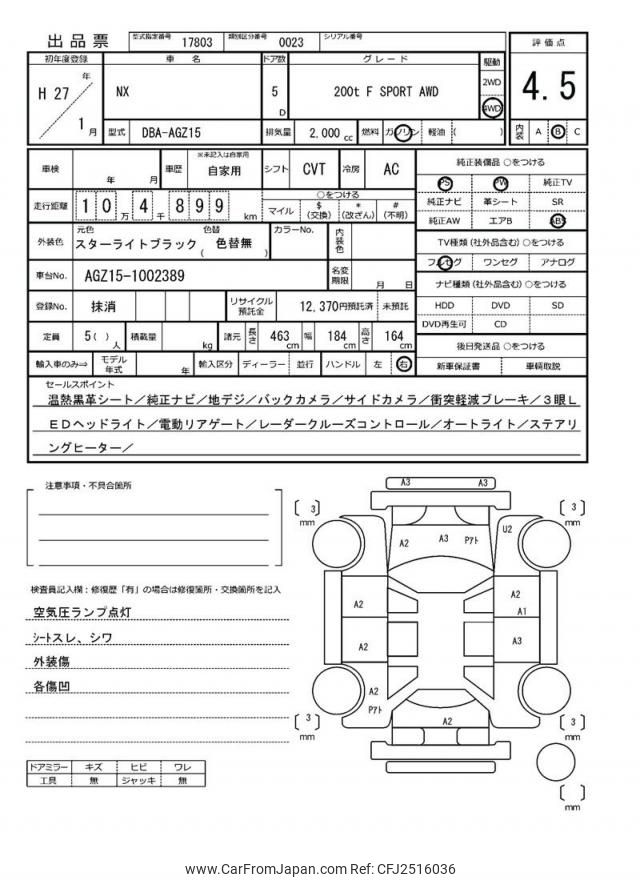 出品票 型式指定番号 17803 類別区分番号 0023 シリアル番号
初年度登録 車名 ドア数 グレード 駆動 評価点
H 27 年 1 月 NX 5 D 200t F SPORT AWD 2WD 4WD 4.5
型式 DBA-AGZ15 排気量 2,000 cc 燃料 ガソリン 軽油 ( ) 内装 A B C
車検 年 月 車歴 ※未記入は自家用 自家用 シフト CVT 冷房 AC
純正装備品 ○をつける
PS PW 純正TV
純正ナビ 革シート SR
純正AW エアB ABS
走行距離 10万4千899 km
○をつける
マイル $(交換) *(改ざん) #(不明)
外装色 元色 スターライトブラック 色替 ( 色替無 ) カラーNo. 内装色
TV種類(社外品含む)○をつける
フルセグ ワンセグ アナログ
車台No. AGZ15-1002389 名変期限 月 日
ナビ種類(社外品含む)○をつける
HDD DVD SD
DVD再生可 CD
登録No. 抹消 リサイクル預託金 12,370円預託済 未預託
定員 5( )人 積載量 kg 諸元 長さ 463cm 幅 184cm 高さ 164cm
後日発送品 ○をつける
新車保証書 車輌取説
輸入車のみ⇒ モデル年式 年 輸入区分 ディーラー 並行 ハンドル 左 右
セールスポイント
温熱黒革シート/純正ナビ/地デジ/バックカメラ/サイドカメラ/衝突軽減ブレーキ/3眼L
EDヘッドライト/電動リアゲート/レーダークルーズコントロール/オートライト/ステアリ
ングヒーター/
注意事項・不具合箇所
検査員記入欄:修復歴「有」の場合は修復箇所・交換箇所を記入
空気圧ランプ点灯
ｼｰﾄスレ、シワ
外装傷
各傷凹
ドアミラー キズ ヒビ ワレ
工具 無 ジャッキ 無
A3 A3
3 mm 3 mm
A2 A3 Pｱﾄ U2
A2 A2
A1
A2 A3
A2
Pｱﾄ
A2
3 mm 3 mm
mm
www.CarFromJapan.com Ref: CFJ2516036